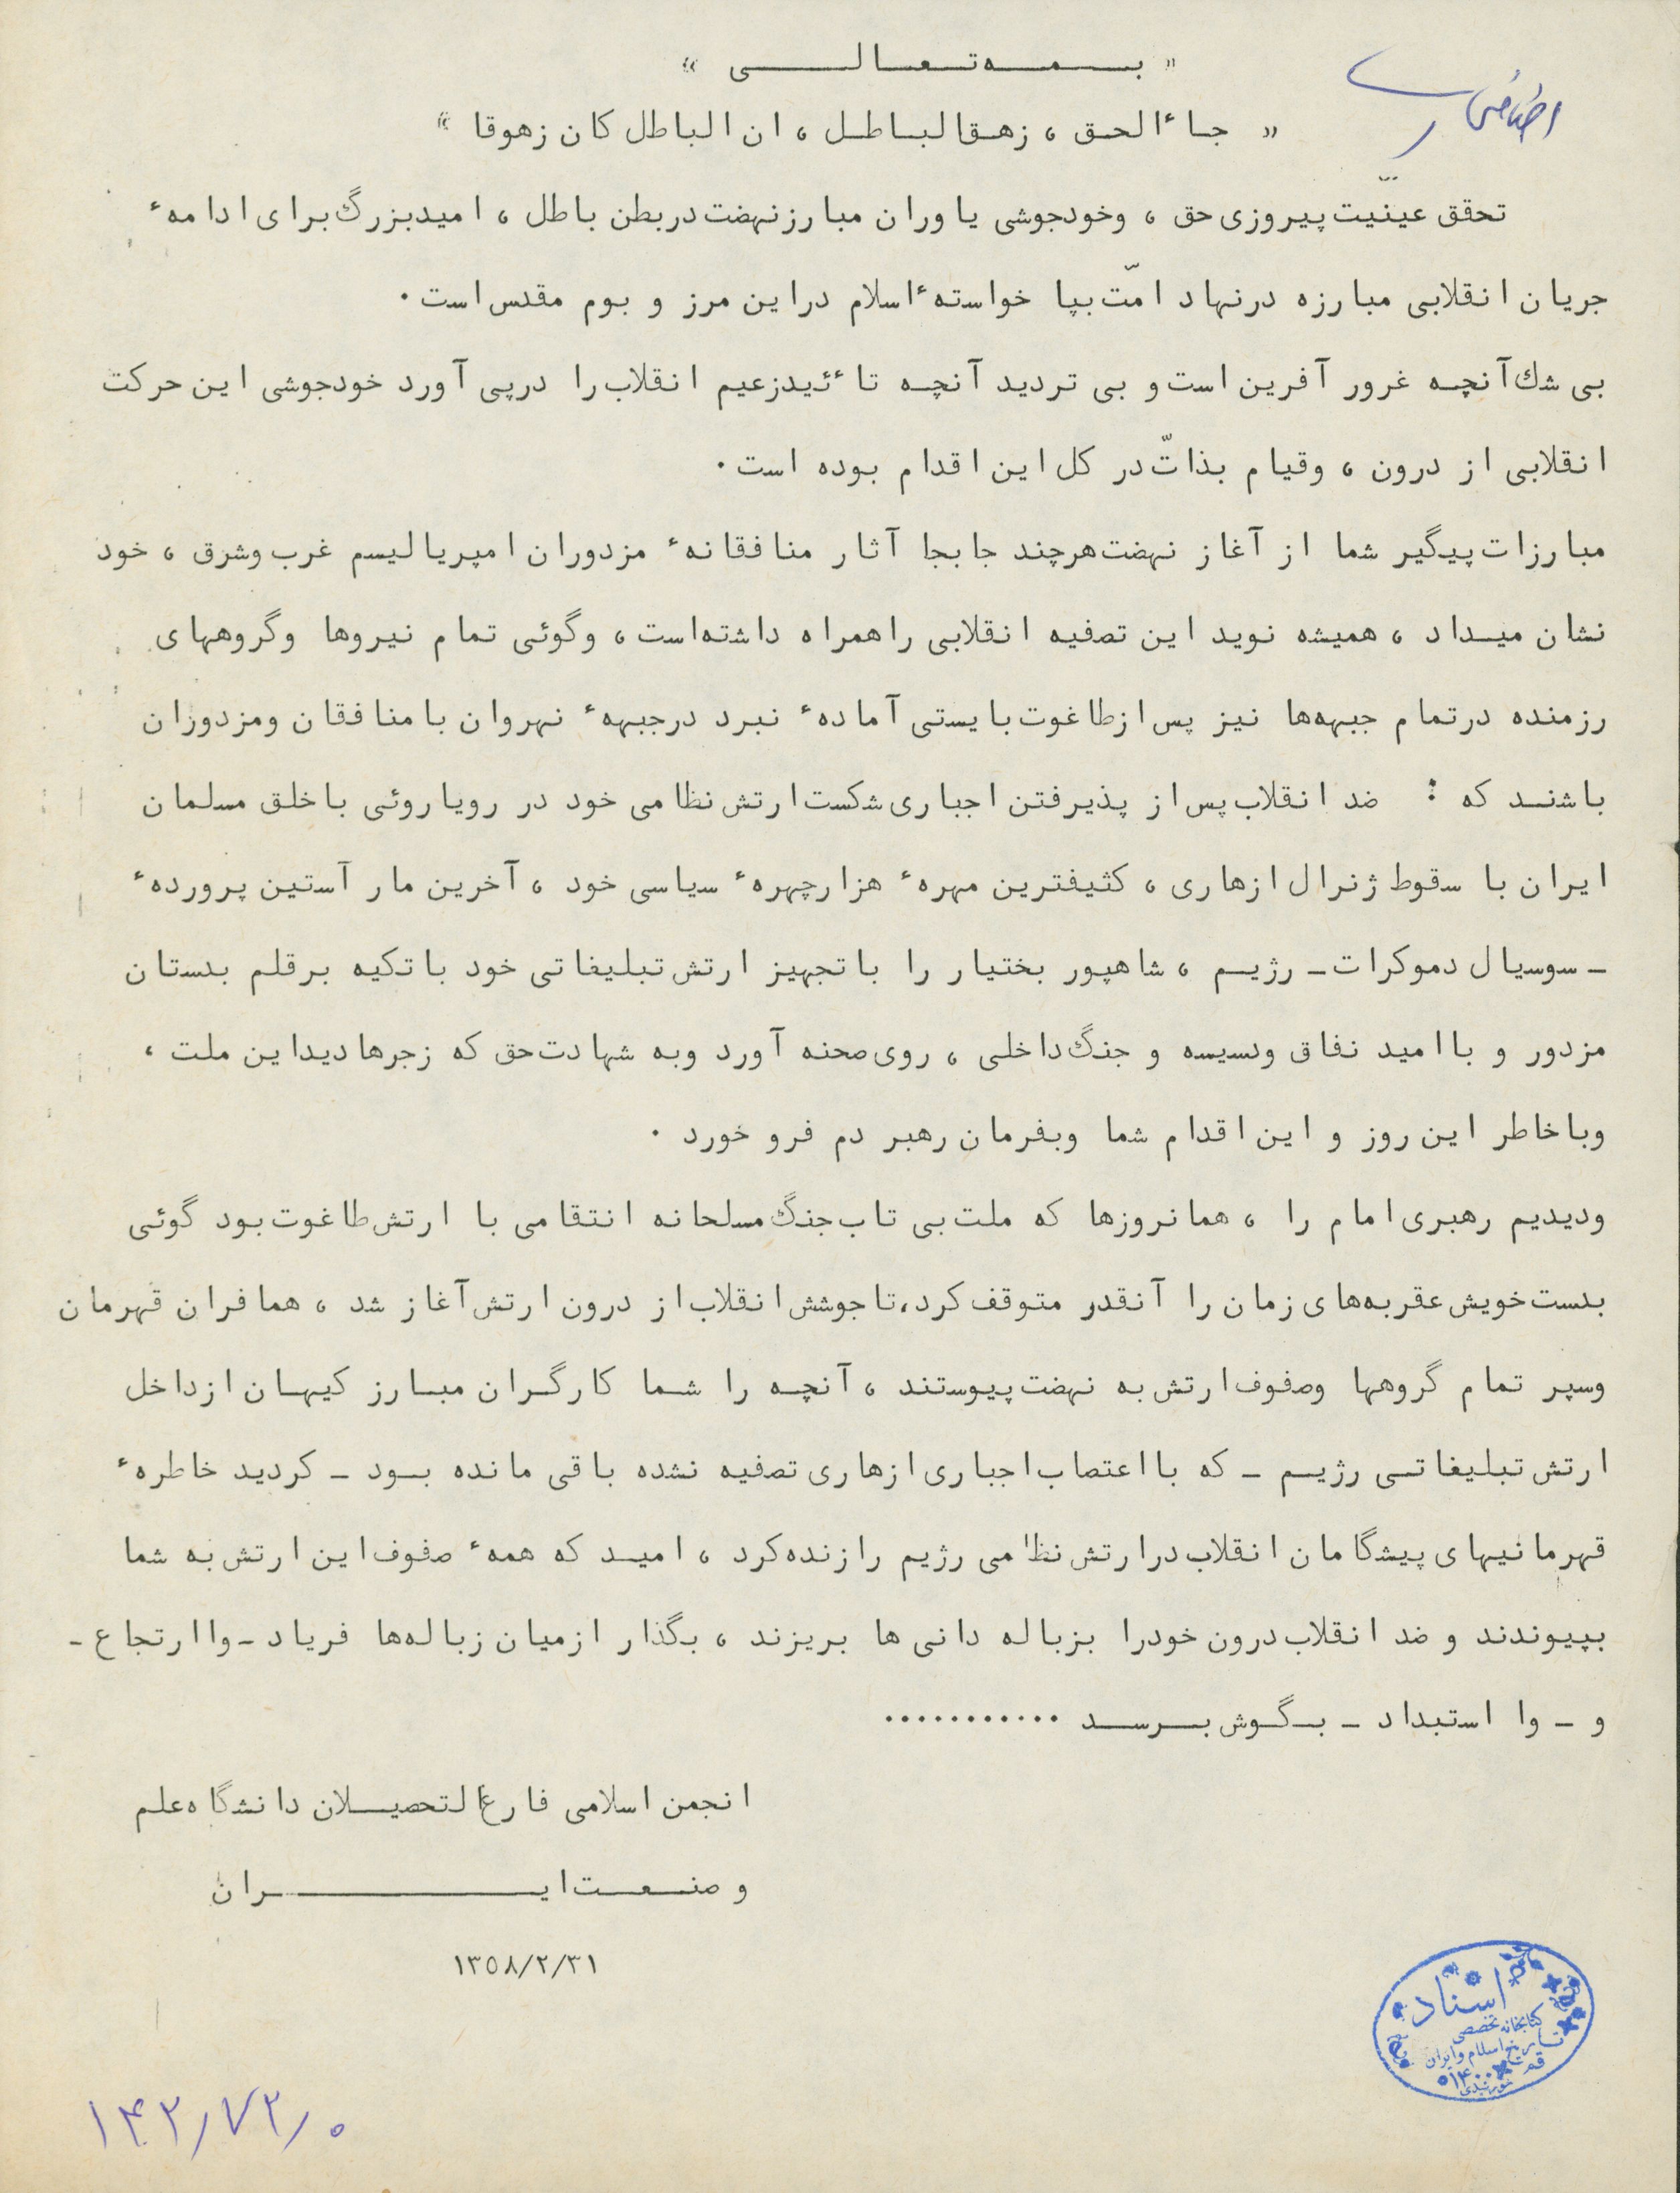 « بسمه تعالی »
« جاءالحق ، زهقالباطل ، ان الباطل کان زهوقا »
تحقق عینیّت پیروزی حق ، وخودجوشی یاوران مبارزنهضت دربطن باطل ، امیدبزرگ برای ادامهٔ
جریان انقلابی مبارزه درنهاد امّت بپا خواستهٔ اسلام دراین مرز و بوم مقدس است .
بی شک آنچه غرور آفرین است و بی تردید آنچه تاءئیدزعیم انقلاب را درپی آورد خودجوشی این حرکت
انقلابی از درون ، وقیام بذاتّ در کل این اقدام بوده است .
مبارزات پیگیر شما از آغاز نهضت هرچند جابجا آثار منافقانهٔ مزدوران امپریالیسم غرب وشرق ، خود
نشان میداد ، همیشه نوید این تصفیه انقلابی راهمراه داشته‌است ، وگوئی تمام نیروها وگروههای
رزمنده درتمام جبهه‌ها نیز پس ازطاغوت بایستی آمادهٔ نبرد درجبههٔ نهروان بامنافقان ومزدوزان
باشند که : ضد انقلاب پس از پذیرفتن اجباری شکست ارتش نظامی خود در رویاروئی باخلق مسلمان
ایران با سقوط ژنرال ازهاری ، کثیفترین مهرهٔ هزارچهرهٔ سیاسی خود ، آخرین مار آستین پروردهٔ
ـ سوسیال دموکرات ـ رژیم ، شاهپور بختیار را باتجهیز ارتش تبلیغاتی خود باتکیه برقلم بدستان
مزدور و باامید نفاق ودسیسه و جنگ داخلی ، روی صحنه آورد وبه شهادت حق که زجرها دیداین ملت ،
وباخاطر این روز و این اقدام شما وبفرمان رهبر دم فرو خورد .
ودیدیم رهبری امام را ، همانروزها که ملت بی تاب جنگ مسلحانه انتقامی با ارتش طاغوت بود گوئی
بدست خویش عقربه‌های زمان را آنقدر متوقف کرد، تاجوشش انقلاب از درون ارتش آغاز شد ، همافران قهرمان
وسپر تمام گروهها وصفوف ارتش به نهضت پیوستند ، آنچه را شما کارگران مبارز کیهان ازداخل
ارتش تبلیغاتی رژیم ـ که بااعتصاب اجباری ازهاری تصفیه نشده باقی مانده بود ـ کردید خاطرهٔ
قهرمانیهای پیشگامان انقلاب درارتش نظامی رژیم رازنده کرد ، امید که همهٔ صفوف این ارتش به شما
بپیوندند و ضد انقلاب درون خودرا بزباله دانی ها بریزند ، بگذار ازمیان زباله‌ها فریاد ـ وا ارتجاع ـ
و ـ وا استبداد ـ بگوش برسد ...........
انجمن اسلامی فارغ‌التحصیلان دانشگاه علم
و صنعت ایران
۱۳۵۸/۲/۳۱
اسناد
کتابخانه تخصصی
تاریخ اسلام و ایران
۱۴۲/۷۲/۰